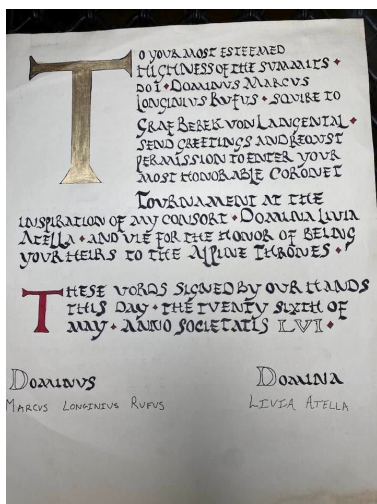 TO YOUR MOST ESTEEMED
HIGHNESS OF THE SUMMITS •
DO I • DOMINUS MARCUS
LONGINIUS RUFUS • SQUIRE TO
GRAF BEREK VON LANGENTAL •
SEND GREETINGS AND REQUST
PERMISSION TO ENTER YOUR
MOST HONORABLE CORONET
TOURNAMENT AT THE
INSPIRATION OF MY CONSORT • DOMINA LIVIA
ATELLA • AND VIE FOR THE HONOR OF BEING
YOUR HEIRS TO THE ALPINE THRONES •
THESE WORDS SIGNED BY OUR HANDS
THIS DAY • THE TWENTY SIXTH OF
MAY • ANNO SOCIETATIS LVI •
DOMINUS DOMINA
MARCUS LONGINIUS RUFUS LIVIA ATELLA